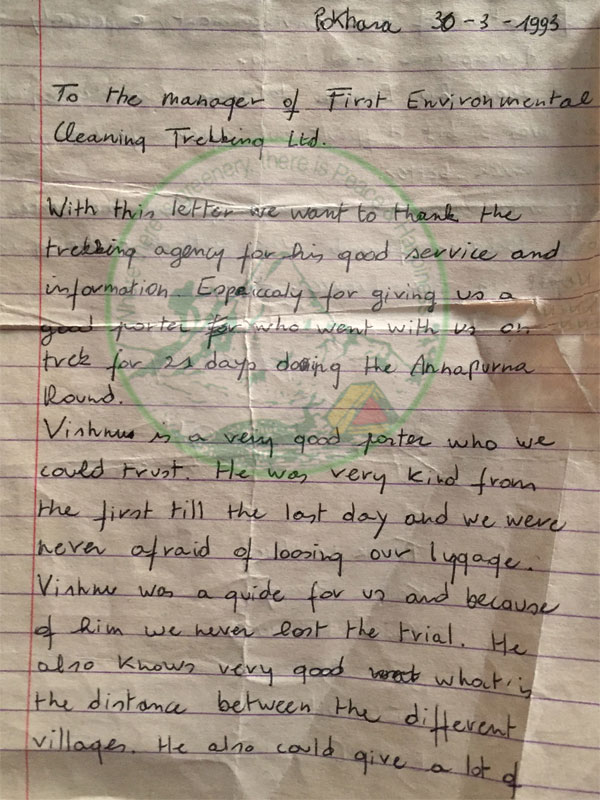 Pokhara 30-3-1993
To the manager of First Environmental
Cleaning Trekking Ltd.
With this letter we want to thank the
trekking agency for his good service and
information. Espaiccaly for giving us a
good porter for who went with us on
trek for 21 days doing the Annapurna
Round.
Vishnu is a very good porter who we
could trust. He was very kind from
the first till the last day and we were
never afraid of loosing our lygage.
Vishnu was a guide for us and because
of him we never lost the trial. He
also knows very good what is
the distance between the different
villages. He also could give a lot of
Where There is Greenery There is Peace &